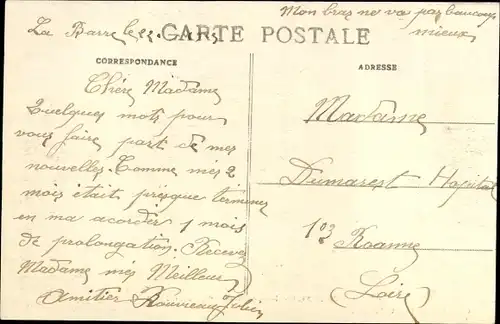 Mon bras ne va pas beaucoup
mieux
La Barre le
CARTE POSTALE
CORRESPONDANCE
Chère Madame
Quelques mots pour
vous faire part de mes
nouvelles. Comme mes 2
mois était presque terminer
on ma acorder 1 mois
de prolongation. Recevez
Madame mes Meilleur
Amitier Rouvreau
ADRESSE
Madame
Dumarest Hopital
103
Roanne
Loire